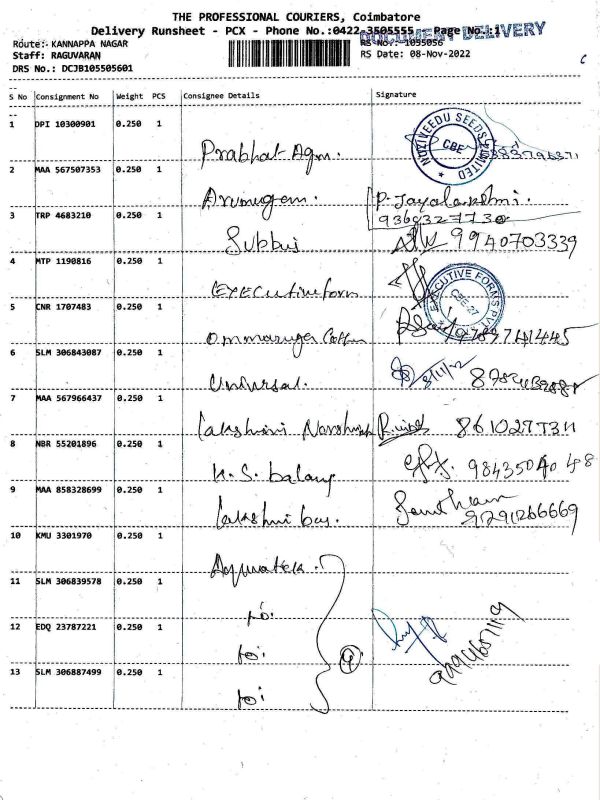 THE PROFESSIONAL COURIERS, Coimbatore
Delivery Runsheet - PCX - Phone No.:0422-3505555 Page No.:1
DOCUMENT DELIVERY
Route:- KANNAPPA NAGAR RS No.:-1055056
Staff: RAGUVARAN RS Date: 08-Nov-2022
DRS No.: DCJB105505601
S No Consignment No Weight PCS Consignee Details Signature
1 DPI 10300901 0.250 1
NUZIVEEDU SEEDS LIMITED CBE
Prabhat Agm.
2 MAA 567507353 0.250 1
Arumugam. P. Jayalakshmi.
3 TRP 4683210 0.250 1 9363327730
Subbu 9940703339
4 MTP 1190816 0.250 1
Executive form EXECUTIVE FORMS PVT CBE-27
5 CNR 1707483 0.250 1
9789741445
6 SLM 306843087 0.250 1
Universal. 8/11/22
7 MAA 567966437 0.250 1
Lakshmi 8610277311
8 NBR 55201896 0.250 1
K.S. balang 9843504048
9 MAA 858328699 0.250 1
Lakshmi 9791266669
10 KMU 3301970 0.250 1
11 SLM 306839578 0.250 1
12 EDQ 23787221 0.250 1
4
13 SLM 306887499 0.250 1